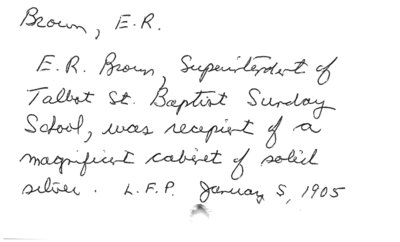 Brown, E.R.
E.R. Brown, Superintendent of
Talbot St. Baptist Sunday
School, was recepient of a
magnificent cabinet of solid
silver. L.F.P. January 5, 1905